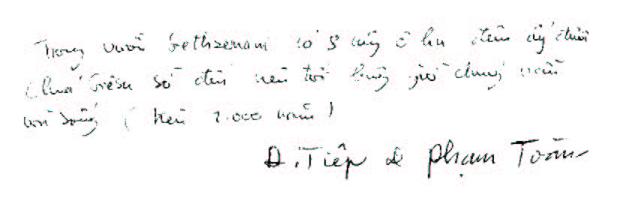 Trong vườn Gethsemani có 8 cây ô liu đêm ấy dưới
Chúa Giêsu đến nên tới bây giờ chúng vẫn
còn sống (trên 2.000 năm)
Đ.Tiệp & Phạm Toàn